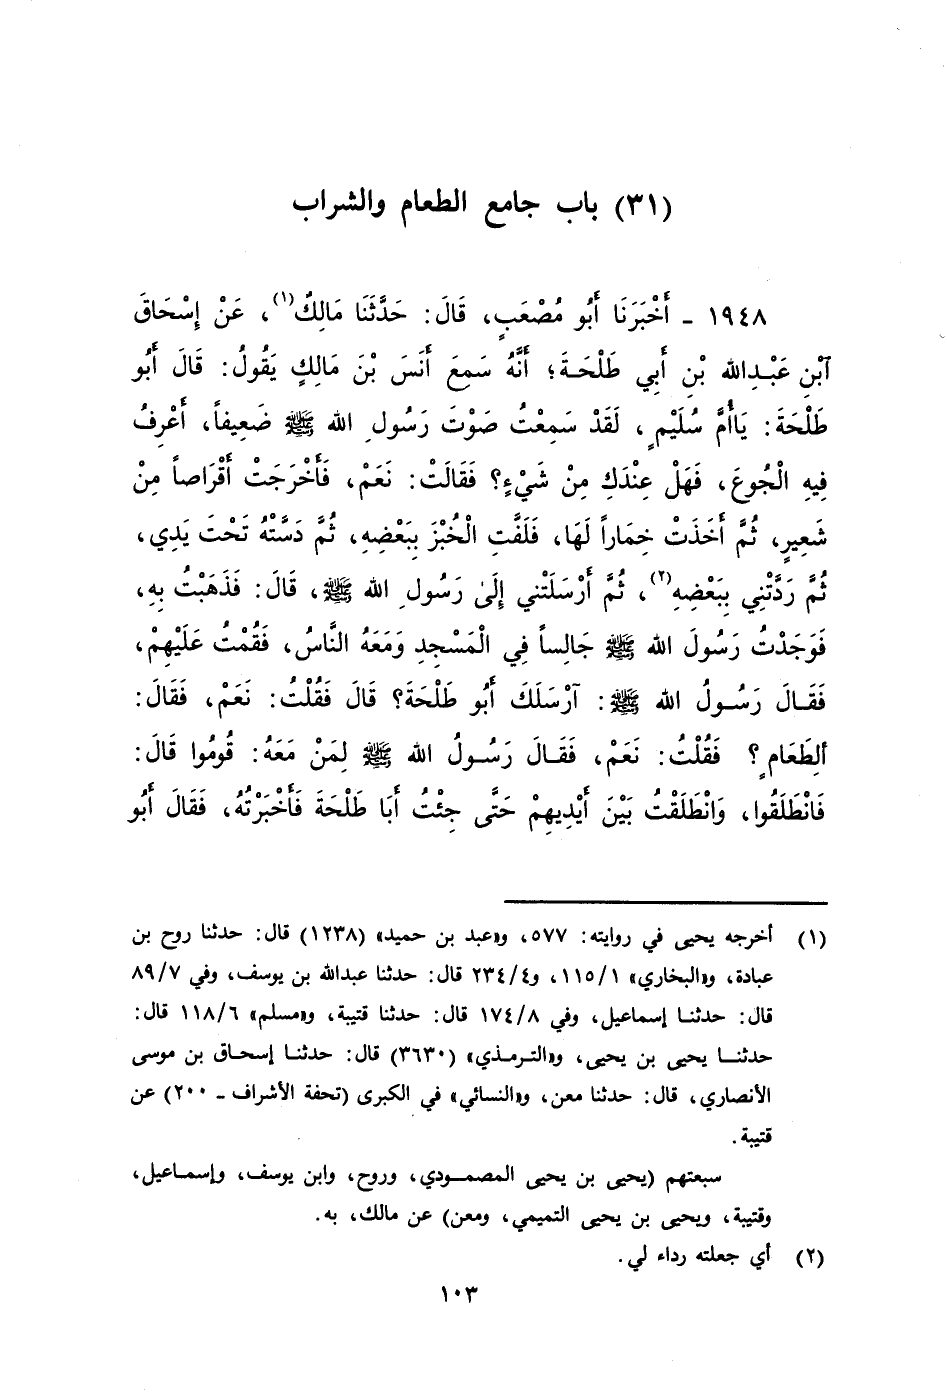 (٣١) باب جامع الطعام والشراب
١٩٤٨ ـ أَخْبَرَنَا أَبُو مُصْعَبٍ، قَالَ: حَدَّثَنَا مَالِكٌ(١)، عَنْ إِسْحَاقَ
آبْنِ عَبْدِاللهِ بْنِ أَبِي طَلْحَةَ؛ أَنَّهُ سَمِعَ أَنَسَ بْنَ مَالِكٍ يَقُولُ: قَالَ أَبُو
طَلْحَةَ: يَاأُمَّ سُلَيْمٍ، لَقَدْ سَمِعْتُ صَوْتَ رَسُولِ اللهِ ﷺ ضَعِيفاً، أَعْرِفُ
فِيهِ الْجُوعَ، فَهَلْ عِنْدَكِ مِنْ شَيْءٍ؟ فَقَالَتْ: نَعَمْ، فَأَخْرَجَتْ أَقْرَاصاً مِنْ
شَعِيرٍ، ثُمَّ أَخَذَتْ خِمَاراً لَهَا، فَلَفَّتِ الْخُبْزَ بِبَعْضِهِ، ثُمَّ دَسَّتْهُ تَحْتَ يَدِي،
ثُمَّ رَدَّتْنِي بِبَعْضِهِ(٢)، ثُمَّ أَرْسَلَتْنِي إِلَىٰ رَسُولِ اللهِ ﷺ، قَالَ: فَذَهَبْتُ بِهِ،
فَوَجَدْتُ رَسُولَ اللهِ ﷺ جَالِساً فِي الْمَسْجِدِ وَمَعَهُ النَّاسُ، فَقُمْتُ عَلَيْهِمْ،
فَقَالَ رَسُولُ اللهِ ﷺ: آرْسَلَكَ أَبُو طَلْحَةَ؟ قَالَ فَقُلْتُ: نَعَمْ، فَقَالَ:
أَلِطَعَامٍ؟ فَقُلْتُ: نَعَمْ، فَقَالَ رَسُولُ اللهِ ﷺ لِمَنْ مَعَهُ: قُومُوا قَالَ:
فَانْطَلَقُوا، وَانْطَلَقْتُ بَيْنَ أَيْدِيهِمْ حَتَّى جِئْتُ أَبَا طَلْحَةَ فَأَخْبَرْتُهُ، فَقَالَ أَبُو
(١) أخرجه يحيى في روايته: ٥٧٧، و«عبد بن حميد» (١٢٣٨) قال: حدثنا روح بن
عبادة، و«البخاري» ١/١١٥، و٤/٢٣٤ قال: حدثنا عبدالله بن يوسف، وفي ٧/٨٩
قال: حدثنا إسماعيل، وفي ٨/١٧٤ قال: حدثنا قتيبة، و«مسلم» ٦/١١٨ قال:
حدثنا يحيى بن يحيى، و«الترمذي» (٣٦٣٠) قال: حدثنا إسحاق بن موسى
الأنصاري، قال: حدثنا معن، و«النسائي» في الكبرى (تحفة الأشراف ـ ٢٠٠) عن
قتيبة.
سبعتهم (يحيى بن يحيى المصمودي، وروح، وابن يوسف، وإسماعيل،
وقتيبة، ويحيى بن يحيى التميمي، ومعن) عن مالك، به.
(٢) أي جعلته رداء لي.
١٠٣